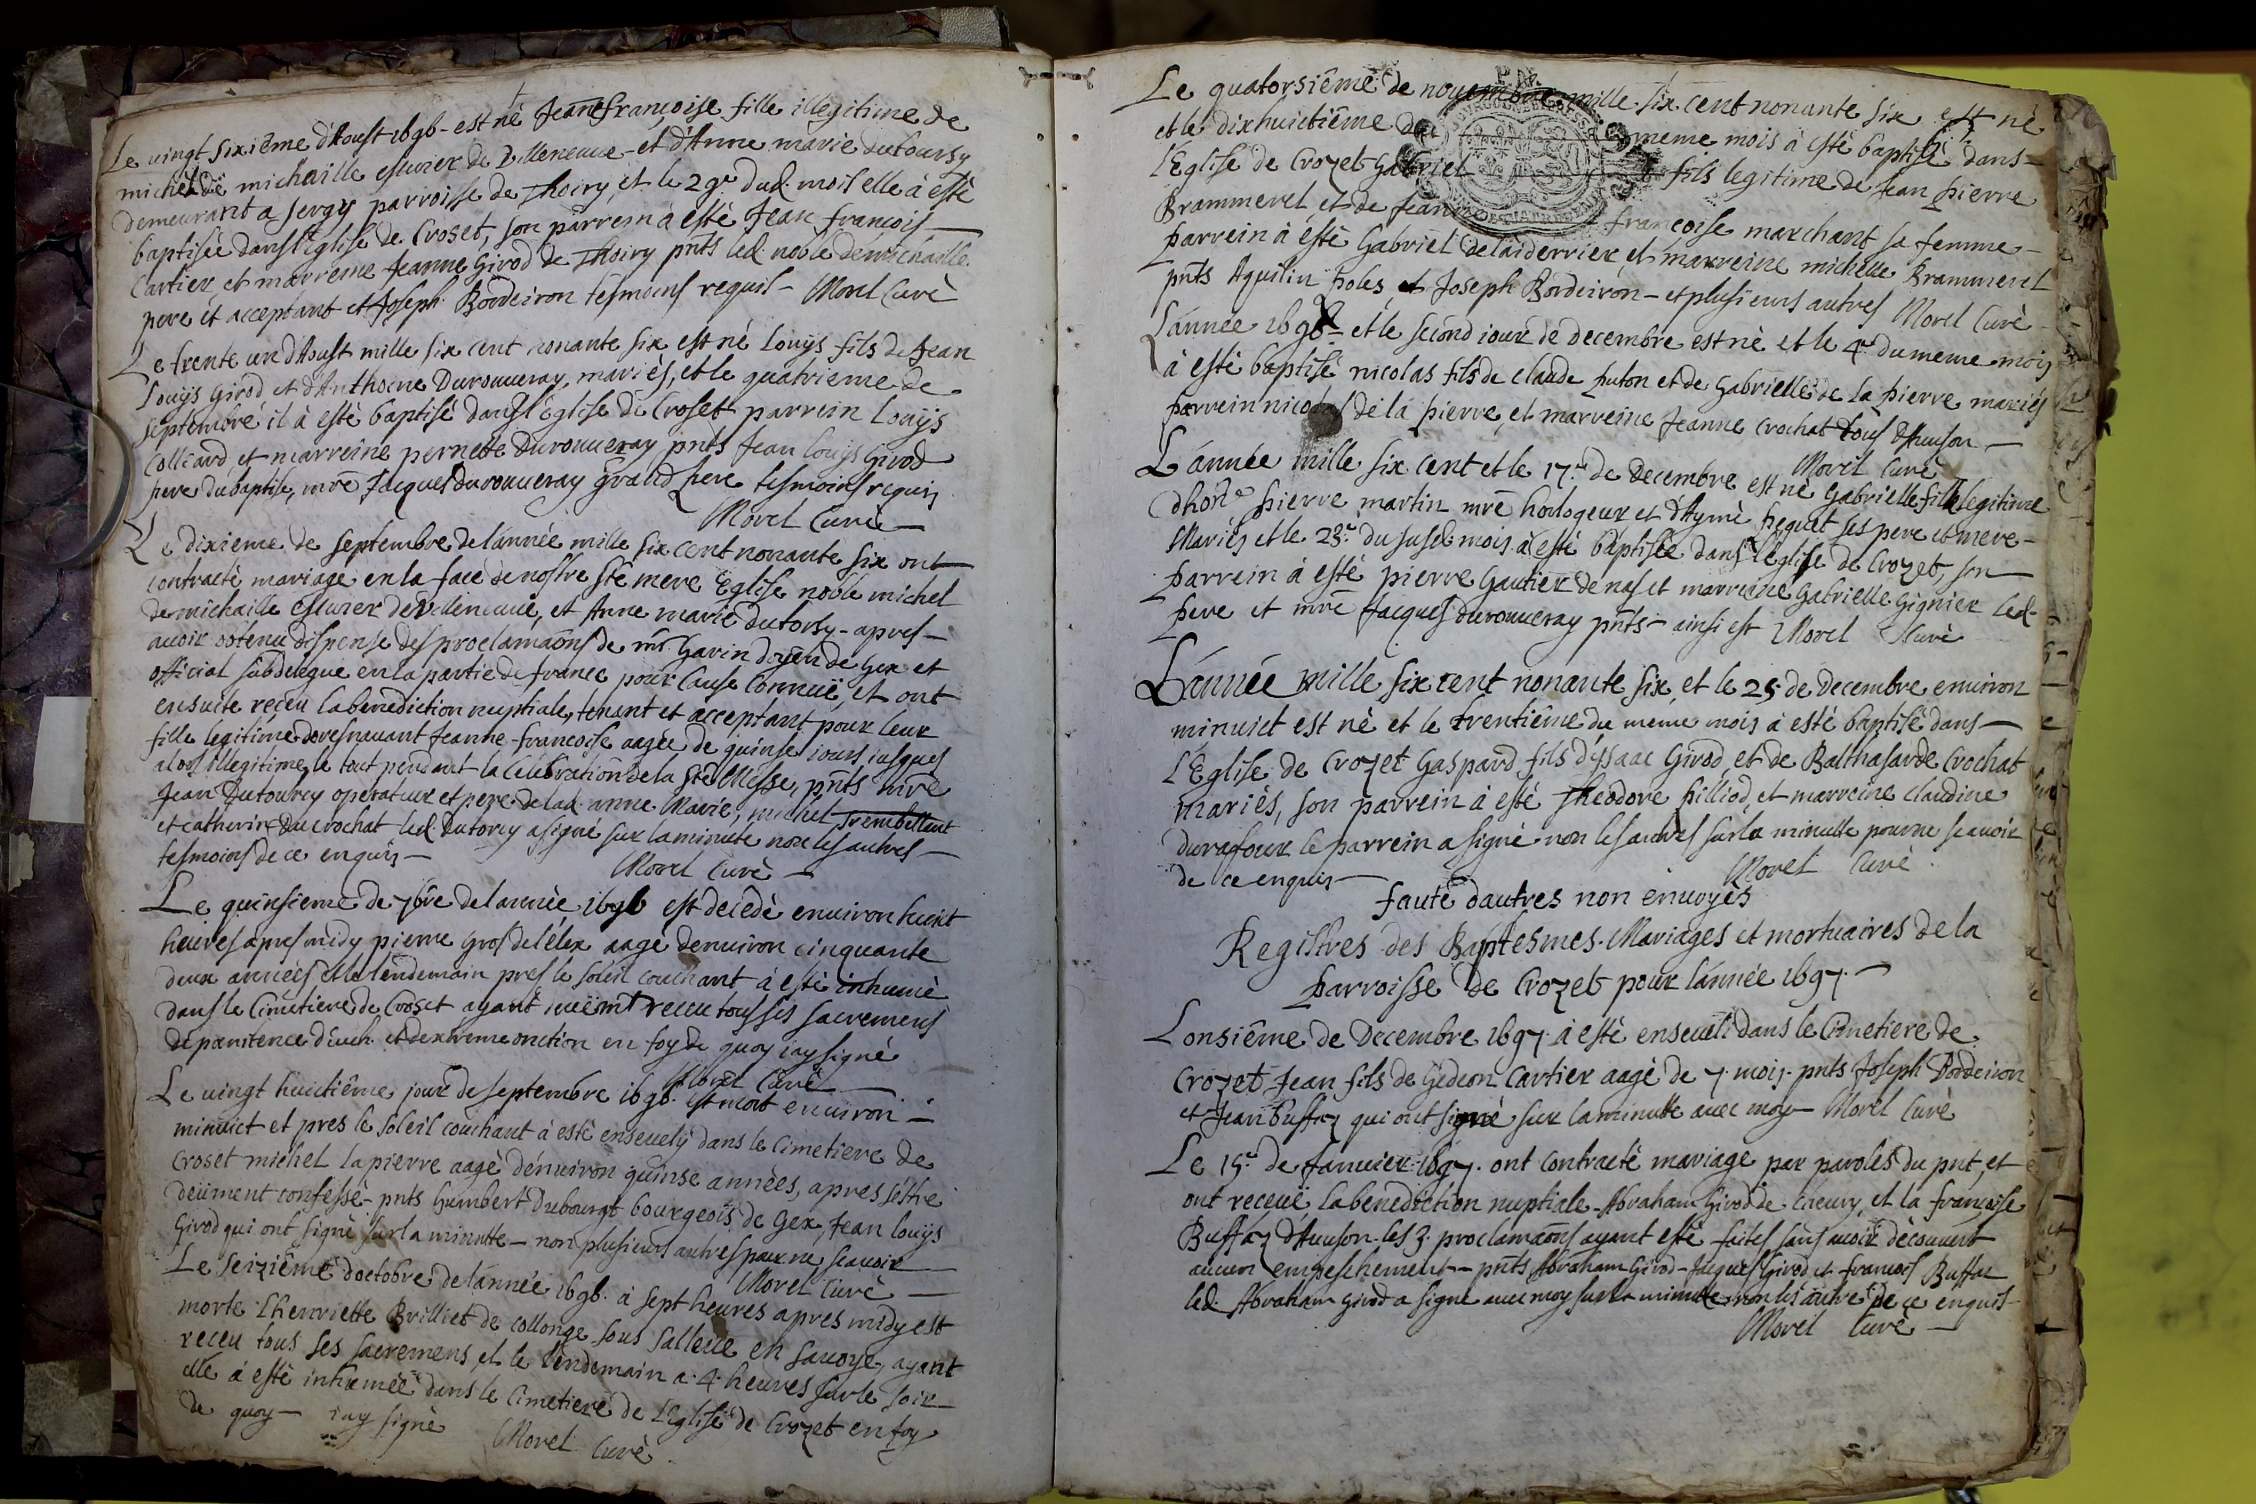 Le vingt sixiême d'Aoust 1696 - est nè Jeanne françoise fille illegitime de
michel de michaille escuier de Villeneuve - et d'Anne marie dutoursy
demeurant a sergy parroisse de Thoiry, et le 29e dud. mois elle à estè
baptisée dans l'Eglise de Croset, son parrein à estè Jean francois
Cartier, et marreine Jeanne Girod de Thoiry pnts led. noble de michaille
pere et acceptant et Joseph Bordeiron tesmoins requis - Morel Curè
Le trente un d'Aoust mille six cent nonante six est nè Louys fils de Jean
Louys Girod et d'Anthoine Durouueray, mariès, et le quatrieme de
septembre il à estè baptisè dans l'Eglise de Croset parrein Louys
Colliard, et marreine pernette Durouueray pnts Jean Louys Girod
pere du baptise, mre Jacques durouueray grand pere tesmoins requis
Morel Curè
Le dixieme de septembre de l'année mille six cent nonante six ont
contractè mariage en la face de nostre Ste mere Eglise noble michel
de michaille escuier de Villeneuue, et Anne marie dutorsy - apres
auoir obtenu dispense des proclamaons de mr. Garin doyen de Gex et
official subdelegue en la partie de france pour cause connuë, et ont
ensuite receu la benediction nuptiale, tenant et acceptant pour leur
fille legitime doresnauant Jeanne-francoise aagée de quinse iours iusques
alors illegitime, le tout pendant la celebration de la Ste Messe, pnts mre
Jean Dutourcy operateur et pere de lad. anne Marie, michel Trembellant
et catherine Du crochat led. Dutorcy a signé sur la minute non les autres
tesmoins de ce enquis
Morel Curè
Le quinsieme de 7bre de l'annèe 1696 est decedè enuiron huict
heures apres midy pierre Gros de lélex aagé denuiron cinquante
deux annèes et le lendemain pres le soleil couchant à estè inhumè
dans le Cimetiere de Croset ayant receu tous ses sacremens
de pænitence d'euch. et d'extreme onction en foy de quoy iay signè
Morel Curè
Le vingt huictiême jour de septembre 1696. est mort enuiron
minuict et pres le soleil couchant à estè enseuely dans le Cimetiere de
Croset michel lapierre aagè dénuiron quinse annèes, apres s'éstre
deüment confessè - pnts humbert Dubourgt bourgeois de Gex, Jean louys
Girod qui ont signè sur la minutte - non plusieurs autres pour ne scauoir
Morel Curè
Le seiziême doctobre de l'année 1696. à sept heures apres midy est
morte Lhenriette Brilliet de collonge sous salleue en sauoye, ayant
receu tous ses sacremens, et le lendemain a 4. heures sur le soir
elle à estè inhumèe dans le Cimetiere de l'Eglise de Crozet en foy
de quoy - iay signè Morel Curè
Le quatorsiême de nouembre mille six cent nonante six est nè
et le dixhuictiême du meme mois à estè baptisè dans
l'Eglise de Crozet Gabriel fils legitime de Jean pierre
Brammerel et de Jeanne francoise marchant sa femme
parrein à estè Gabriel delaiderrier, et marreine michelle Brammerel
pnts Aquilin poles, et Joseph Bordeiron - et plusieurs autres Morel Curè
L'année 1696 et le second iour de decembre est nè et le 4e du meme mois
à estè baptisè nicolas fils de claude puton et de Gabrielle de la pierre mariés
parrein nicolas de la pierre, et marreine Jeanne crochat tous d'Auuson
Morel Curè
L'année mille six cent et le 17e. de Decembre est nè Gabrielle fille legitime
d'hone. pierre martin mre horlogeur et d'Aymè peguet ses pere et mere
Mariés et le 23e du susd. mois à estè baptisée dans l'église de Crozet, son
parrein à estè pierre Gautier de nas et marreine Gabrielle Gignier led.
pere et mre Jacques durouueray pnts - ainsi est Morel Curè
L'année mille six cent nonante six, et le 25. de Decembre enuiron
minuict est nè et le trentiême du meme mois à estè baptisè dans
l'Eglise de Crozet Gaspard fils d'Issaac Girod, et de Balthasarde Crochat
mariès, son parrein à estè Theodore pilliod, et marreine claudine
duraffour le parrein a signè non les autres sur la minutte pour ne scauoir
de ce enquis
Morel Curè
faute d'autres non enuoyés
Registres des Baptesmes. Mariages et mortuaires de la
parroisse de Crozet pour l'année 1697.
L'onsiême de Decembre 1697. à esté enseueli dans le Cimetiere de
Crozet Jean fils de Gédeon Cartier aagè de 7. mois. pnts Joseph Bordeiron
et Jean buffaz qui ont signé sur la minutte auec moy - Morel Curè
Le 15e. de Januier 1697. ont contractè mariage par paroles du pnt, et
ont receuë la benediction nuptiale Abraham Girod de cheury, et la françoise
Buffaz d'Auuson. les 3. proclamaons ayant estè faites sans auoir découuert
aucun empeschement - pnts Abraham Girod - Jacques Girod et francois Buffaz
led. Abraham Girod a signé auec moy sur la minutte non les autre de ce enquis
Morel Curè